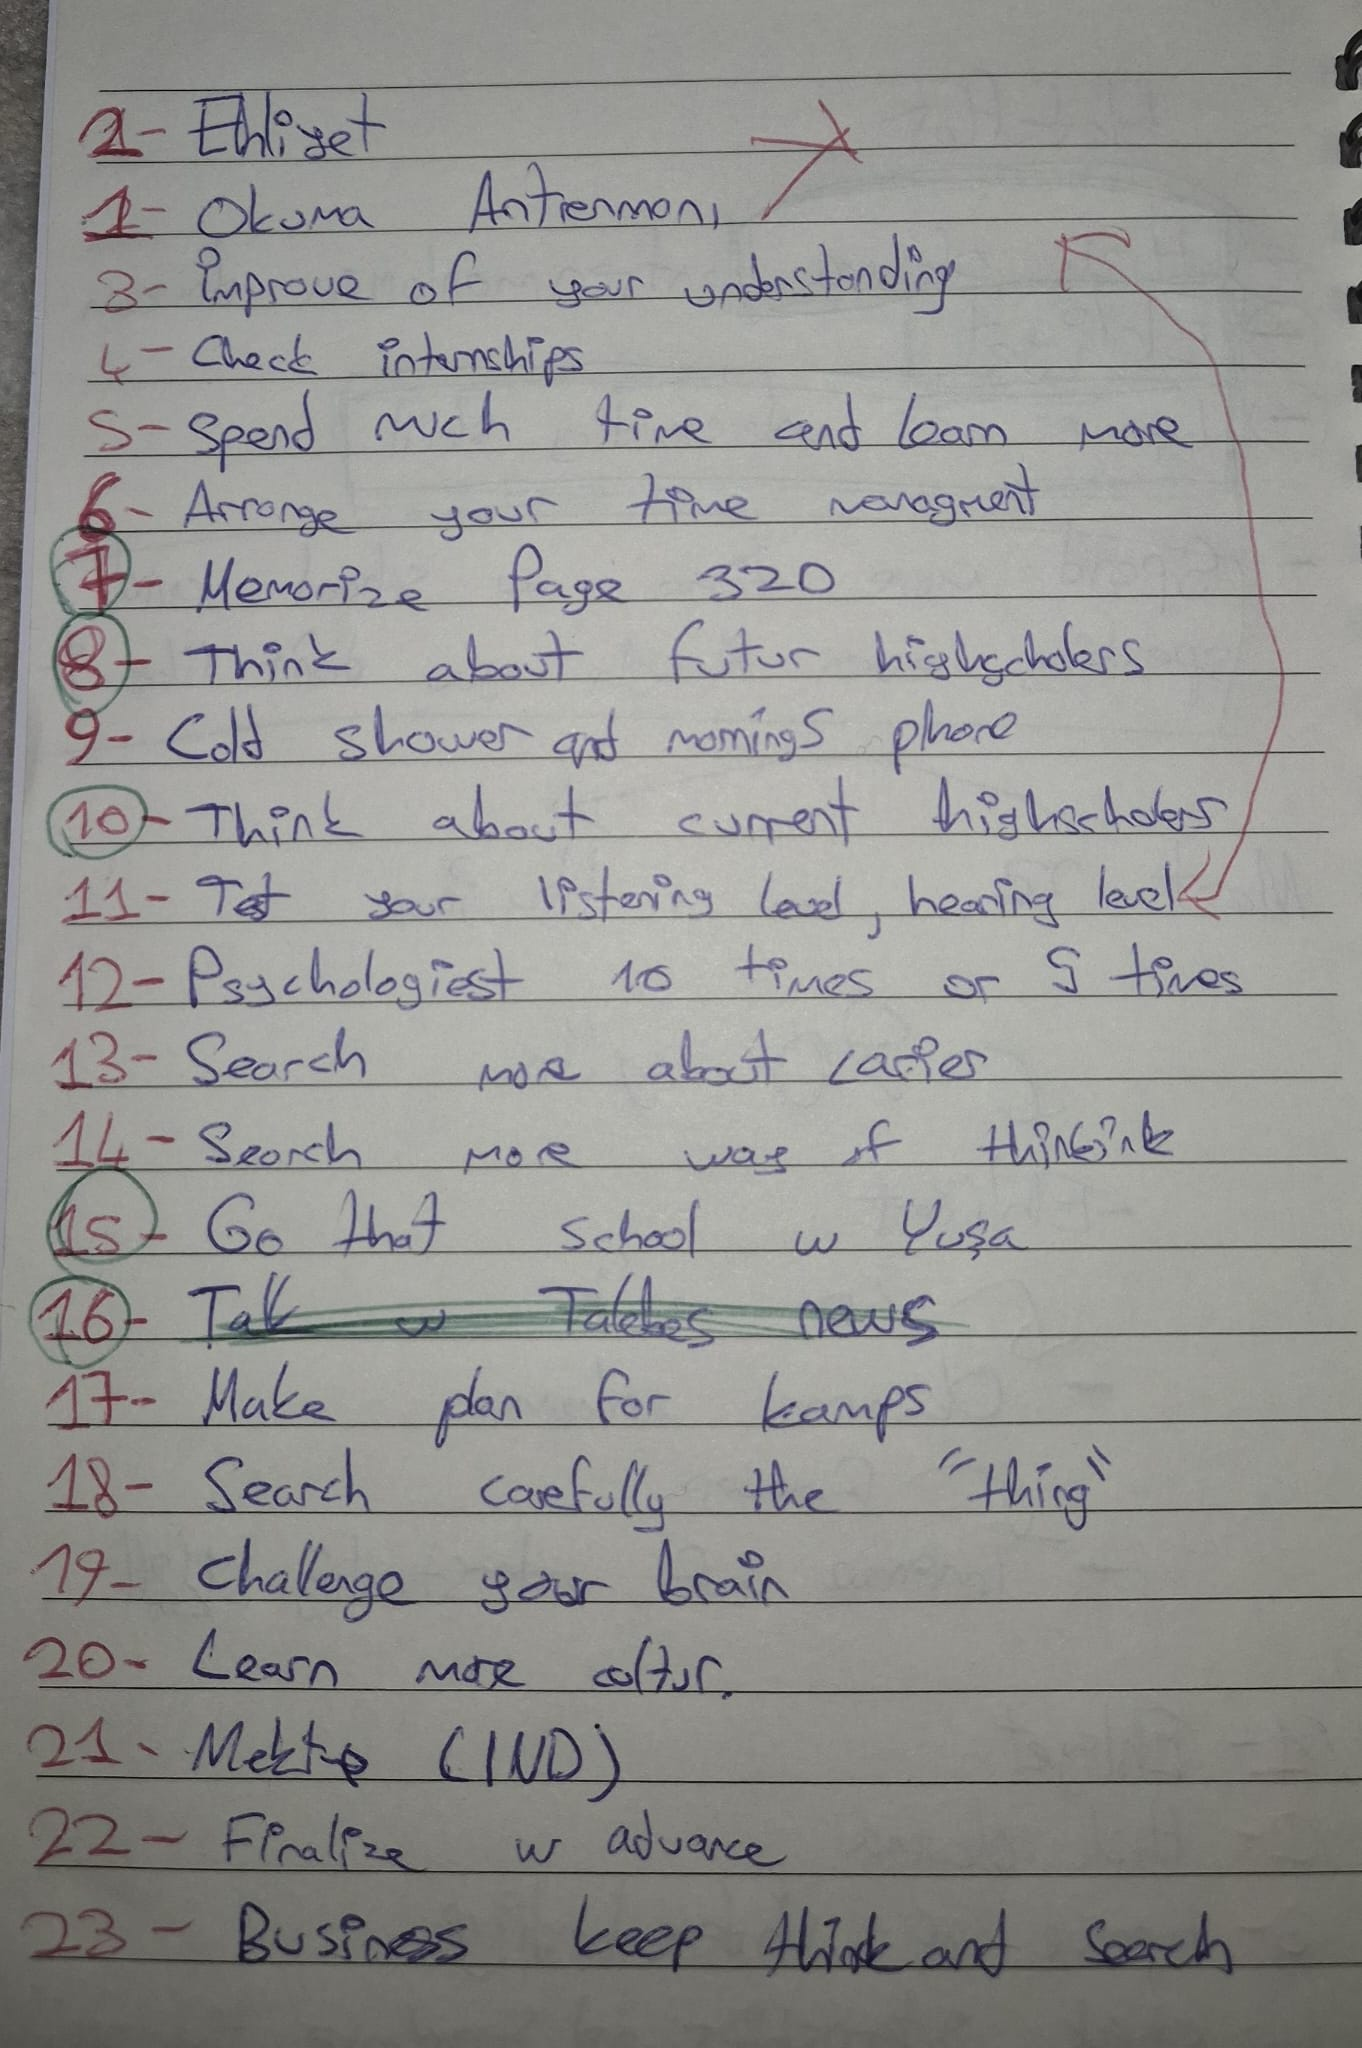 2- Ehliyet
1- Okuma Antrenmanı
3- improve of your understanding
4- Check internships
5- Spend much time and learn more
6- Arrange your time managment
7- Memorize Page 320
8- Think about futur highgcholers
9- Cold shower and mornings phone
10- Think about current highscholers
11- Test your listening level, hearing level
12- Psychologiest 10 times or 5 times
13- Search more about carier
14- Search more way of thinkink
15- Go that school w Yuşa
16- Talk w Talebes news
17- Make plan for kamps
18- Search carefully the "thing"
19- Challenge your brain
20- Learn more coltur.
21- (IND)
22- Finalize w advance
23- Business keep think and search